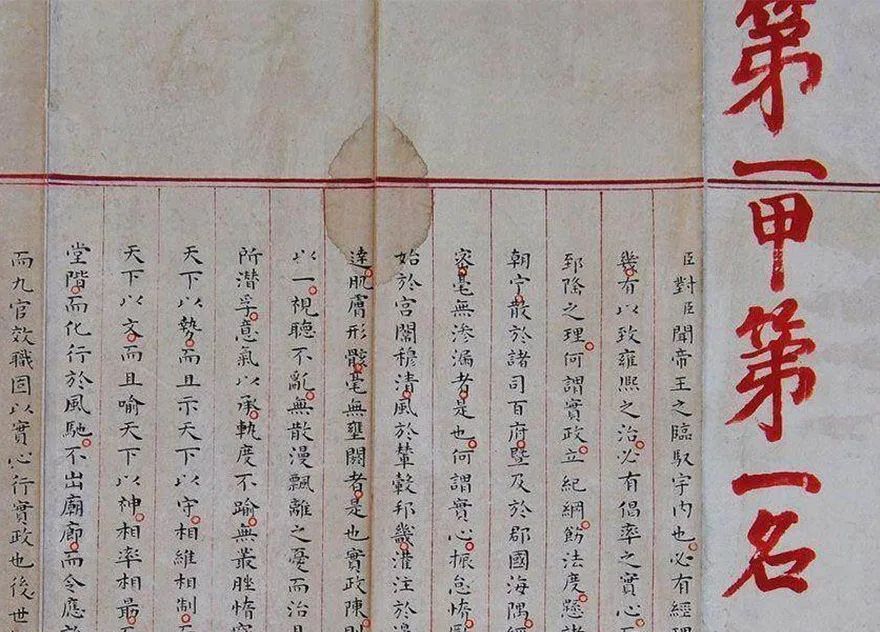 第一甲第一名
臣對臣聞帝王之臨馭宇內也必有經理
幾有以致雍熙之治必有倡率之實心而
郅隆之理何謂實政立紀綱飭法度懸諸
朝宁散於諸司百府暨及於郡國海隅經
密毫無滲漏者是也何謂實心振怠惰勵
始於宮闈穆清風於輦轂邦畿灌注於邊
達肌膚形骸毫無壅閼者是也實政陳則
以一視聽不亂無散漫飄離之憂而治具
所潛孚意氣以承軌度不踰無叢脞惰窳
天下以勢而且示天下以守相維相制而
天下以文而且喻天下以神相率相最而
堂階而化行於風馳不出廟廊而令應於
而九官效職固以實心行實政也後世